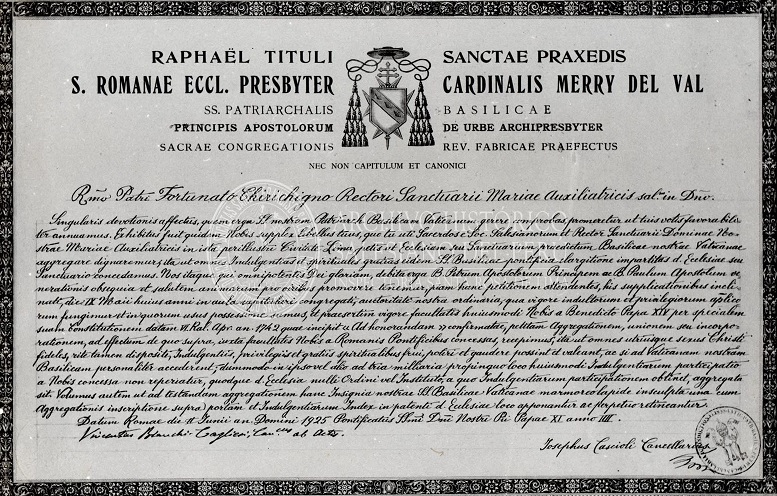 RAPHAËL TITULI SANCTAE PRAXEDIS
S. ROMANAE ECCL. PRESBYTER CARDINALIS MERRY DEL VAL
SS. PATRIARCHALIS BASILICAE
PRINCIPIS APOSTOLORUM DE URBE ARCHIPRESBYTER
SACRAE CONGREGATIONIS REV. FABRICAE PRAEFECTUS
NEC NON CAPITULUM ET CANONICI
Rm̃o Patri Fortunato Chirichigno Rectori Sanctuarii Mariae Auxiliatricis salm in Dno.
Singularis devotionis affectus, quem erga SS. nostram Patriarch. Basilicam Vaticanam gerere comprobas, promeretur ut tuis votis favorabili
ter annuamus. Exhibitus fuit quidem Nobis supplex libellus tuus, quo tu uti Sacerdos e Soc. Salesianorum et Rector Sanctuarii Dominae No
strae Mariae Auxiliatricis in ista perillustri Civitate Lima, petis ut Ecclesiam seu Sanctuarium praedictum Basilicae nostrae Vaticanae
aggregare dignaremur, ita ut omnes Indulgentias et spirituales gratias eidem SS. Basilicae pontificia elargitione impartitas d. Ecclesiae seu
Sanctuario concedamus. Nos itaque qui omnipotentis Dei gloriam, debita erga B. Petrum Apostolorum Principem ac B. Paulum Apostolum ve
nerationis obsequia et salutem animarum pro viribus promovere tenemur, piam hanc petitionem attendentes, his supplicationibus incli
nati, die IX Maii huius anni in aula capitulari congregati, auctoritate nostra ordinaria, qua vigore indultorum et privilegiorum aplico
rum fungimur et in quorum usus possessione sumus, et praesertim vigore facultatis huiusmodi Nobis a Benedicto Papa XIV per specialem
suam Constitutionem datam Kal. Apr. an. 1742 quae incipit « Ad honorandam » confirmatae, petitam Aggregationem, unionem seu incorpo
rationem, ad effectum de quo supra, iuxta facultates Nobis a Romanis Pontificibus concessas, recepimus, ita ut omnes utriusque sexus Christi
fideles, rite tamen dispositi, Indulgentiis, privilegiis et gratiis spiritualibus frui, potiri et gaudere possint et valeant, ac si ad Vaticanam nostram
Basilicam personaliter accederent, dummodo in ipso vel dio ad tria milliaria propinquo loco huiusmodi Indulgentiarum participatio
a Nobis concessa non reperiatur, quodque d. Ecclesia nulli Ordini vel Instituto, a quo Indulgentiarum participationem obtineat, aggregata
sit. Volumus autem ut ad testandam aggregationem hanc Insignia nostrae SS. Basilicae Vaticanae marmoreo lapide insculpta una cum
Aggregationis inscriptione supra portam et Indulgentiarum Index in patenti d. Ecclesiae loco apponantur ac perpetuo retineantur.
Datum Romae die 11 Junii an. Domini 1925 Pontificatus Ssm̃i Dnĩ Nostri Pii Papae XI anno IIII.
Josephus Cascioli Cancellarius